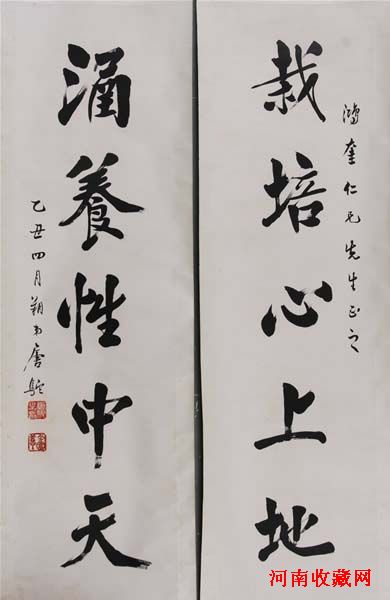 鴻奎仁兄先生正之
栽培心上地
涵養性中天
乙丑四月朔弟唐駝
河南收藏网